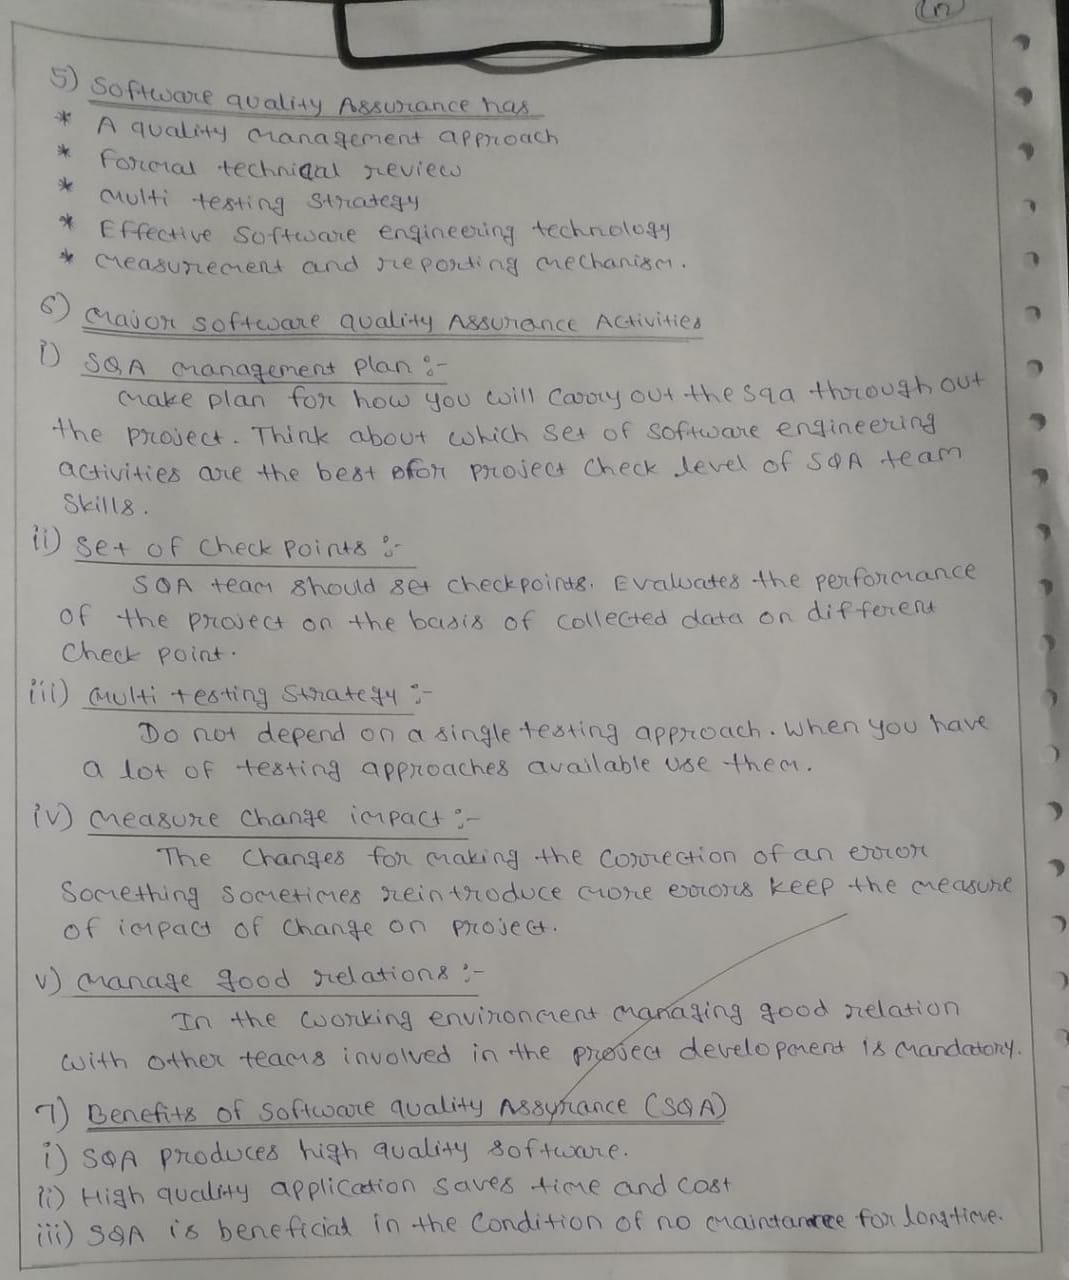 5) Software quality Assurance has
* A quality management approach
* Formal technical review
* Multi testing strategy
* Effective software engineering technology
* Measurement and reporting mechanism.
6) Major software quality Assurance Activities
i) SQA management plan :-
Make plan for how you will carry out the sqa through out
the project. Think about which set of software engineering
activities are the best for project check level of SQA team
skills.
ii) Set of check points :-
SQA team should set checkpoints. Evaluates the performance
of the project on the basis of collected data on different
check point.
iii) Multi testing strategy :-
Do not depend on a single testing approach. when you have
a lot of testing approaches available use them.
iv) Measure change impact :-
The changes for making the correction of an error
something sometimes reintroduce more errors keep the measure
of impact of change on project.
v) Manage good relations :-
In the working environment managing good relation
with other teams involved in the project development is mandatory.
7) Benefits of software quality Assurance (SQA)
i) SQA produces high quality software.
ii) High quality application saves time and cost
iii) SQA is beneficial in the condition of no for longtime.